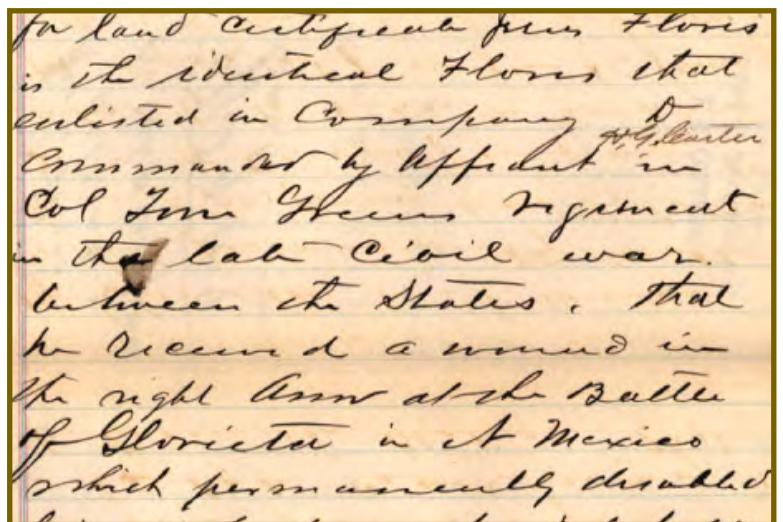 for land certificate Jesus Flores
is the identical Flores that
enlisted in Company D
H. G. Carter
Commanded by Affiant in
Col Tom Greens regiment
in the late Civil war.
between the States. That
he received a wound in
the right Arm at the Battle
of Glorieta in N Mexico
which permanently disabled